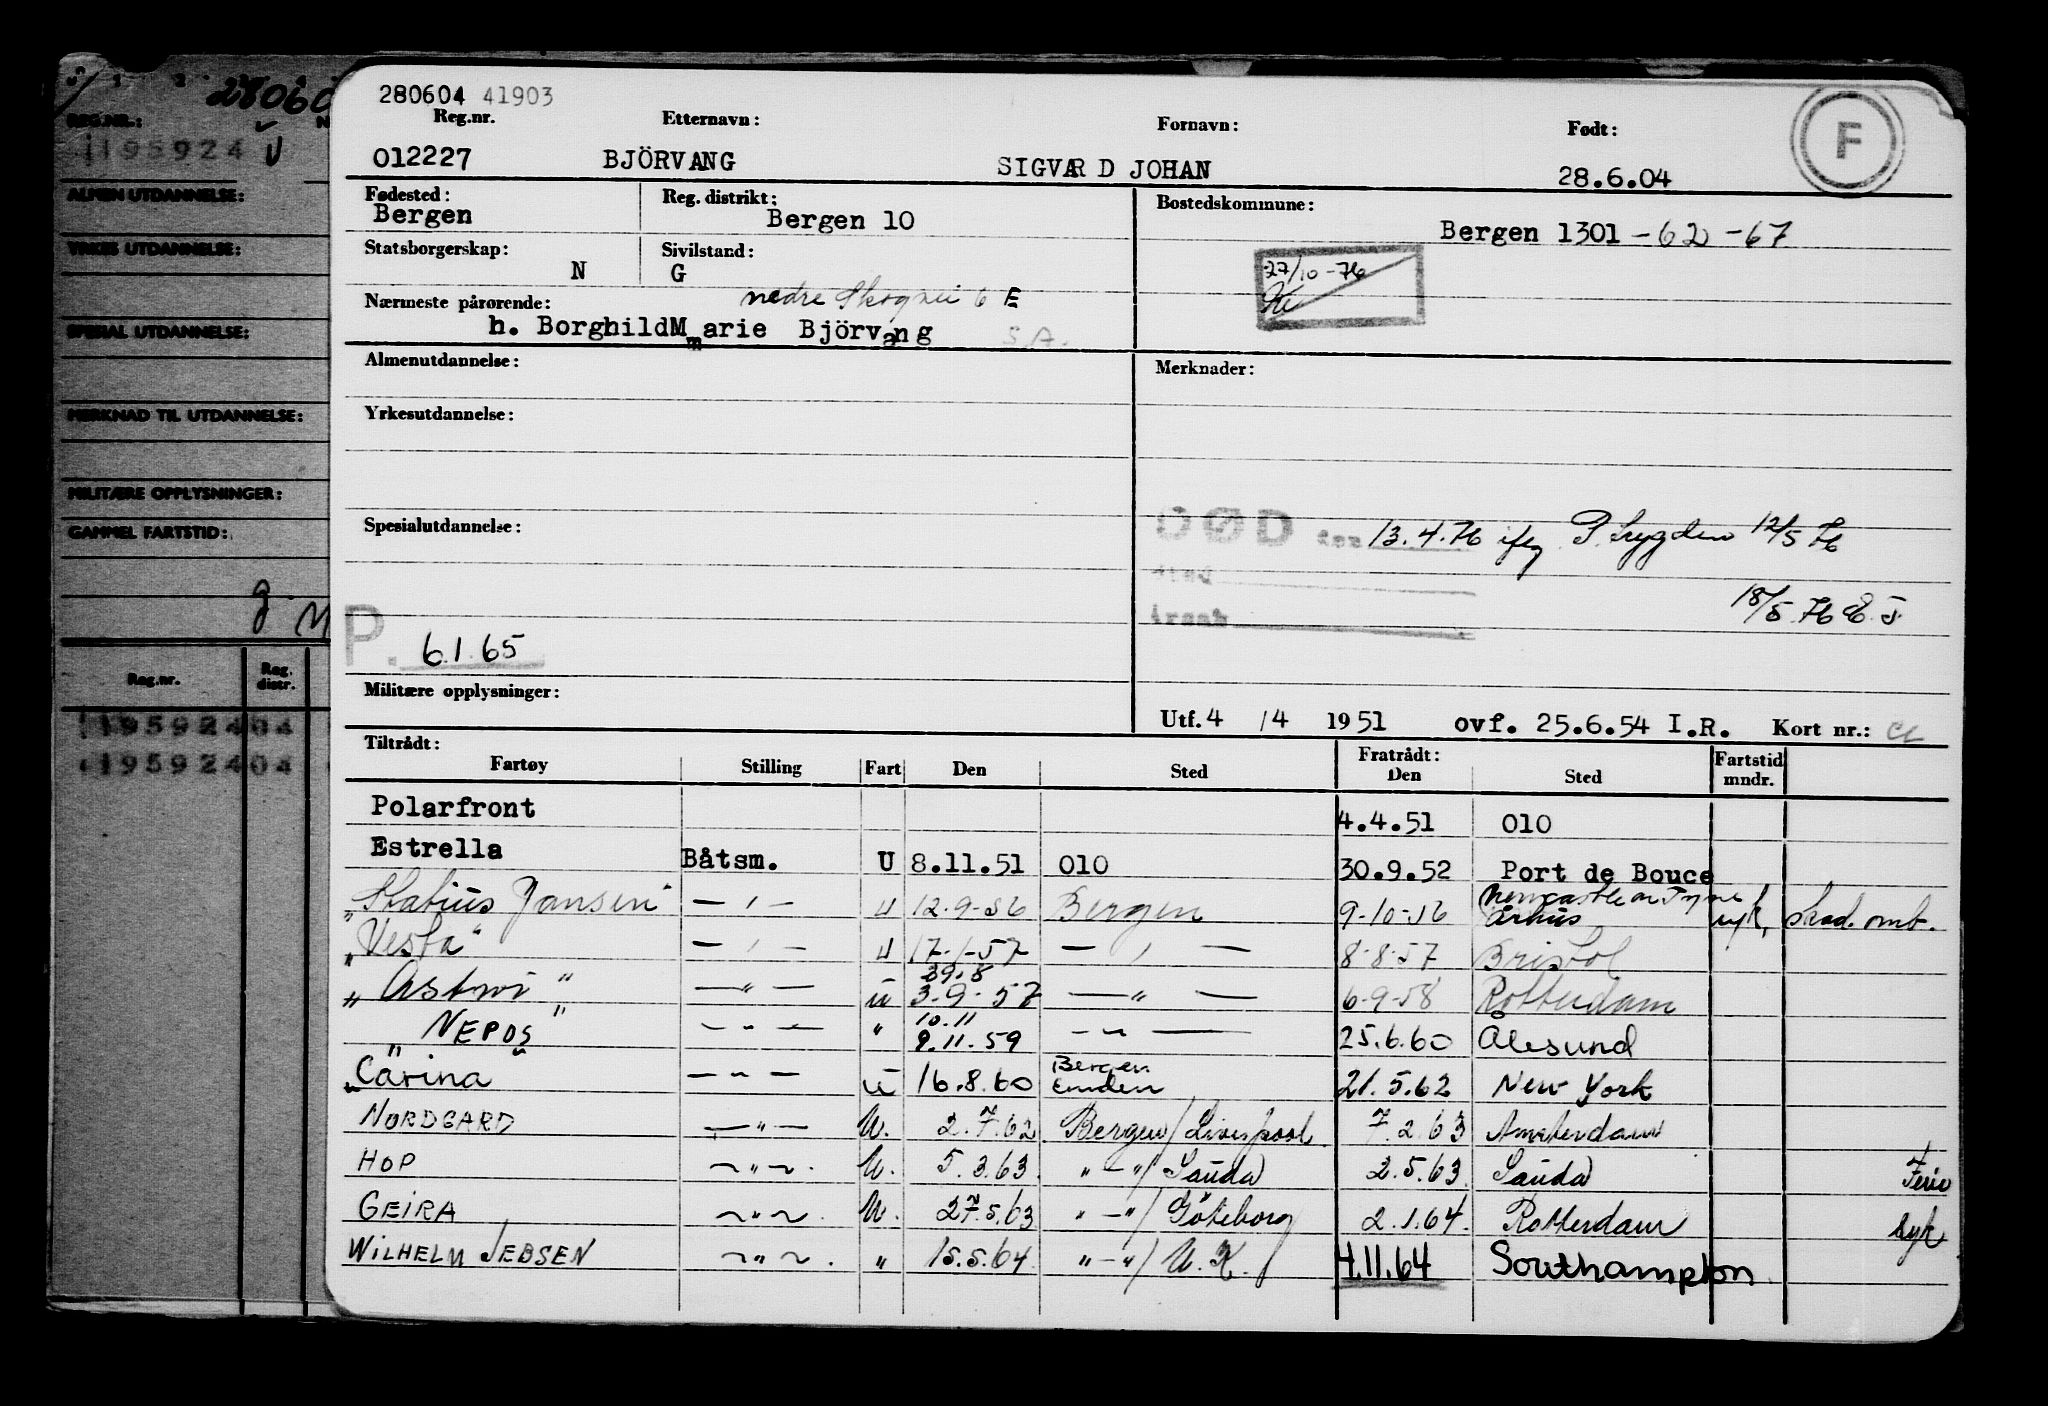 280604 41903
Reg.nr. Etternavn: Fornavn: Født:
012227 BJÖRVANG SIGVARD JOHAN 28.6.04
F
Fødested: Reg. distrikt: Bostedskommune:
Bergen Bergen 10 Bergen 1301 - 62 - 67
Statsborgerskap: Sivilstand:
N G
27/10-76
Nærmeste pårørende: nedre 6 E
h. BorghildMmarie Björvang S.A.
Almenutdannelse: Merknader:
Yrkesutdannelse:
Spesialutdannelse: DØD den 13.4.76 iflg P. Trygden 12/5 76
sted
årsak
18/5.76
P. 6.1.65
Militære opplysninger:
Utf. 4 / 4 1951 ovf. 25.6.54 I.R. Kort nr.:
Tiltrådt: Fratrådt:
Fartøy Stilling Fart Den Sted Den Sted Fartstid mndr.
Polarfront 4.4.51 010
Estrella Båtsm. U 8.11.51 010 30.9.52 Port de Bouce
Statius Jansen — " — U 12-9-56 Bergen 9-10-56 Newcastle on Tyne Århus syk, skad. omb.
"Vesta" — " — U 17-1-57 — " — 8-8-57 Bristol
29.8
"Astrid" — " — U 3-9-57 — " — 6-9-58 Rotterdam
10.11
"NEPOS" — " — " 9.11.59 — " — 25.6.60 Ålesund
"Carina" — " — U 16.8.60 Bergen Emden 21.5.62 New York
NORDGARD — " — U. 2.7.62 Bergen/Liverpool 7.2.63 Amsterdam
HOP — " — U. 5.3.63. " — "/Sauda 2.5.63. Sauda Ferie
GEIRA — " — U. 27.5.63 " — "/Göteborg 2.1.64. Rotterdam syk
WILHELM JEBSEN — " — " 15.5.64. " — "/U.K. 4.11.64 Southampton
28060
REG.NR.: N
195924 U
ALMEN UTDANNELSE:
YRKES UTDANNELSE:
SPESIAL UTDANNELSE:
MERKNAD TIL UTDANNELSE:
MILITÆRE OPPLYSNINGER:
GAMMEL FARTSTID:
Reg.nr. Reg. distr.
119592404
119592404